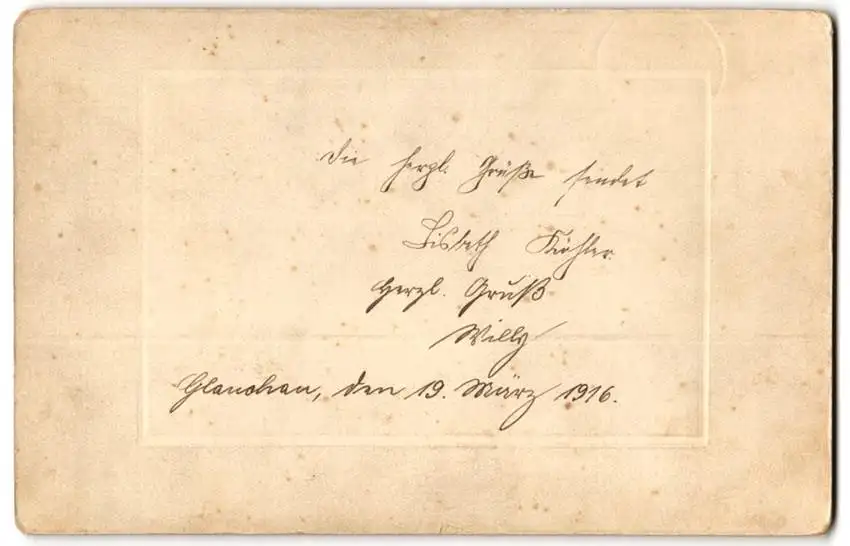 Die herzl. Grüße sendet
Lisbeth
Herzl. Gruß
Willy
Glauchau, den 19. März 1916.